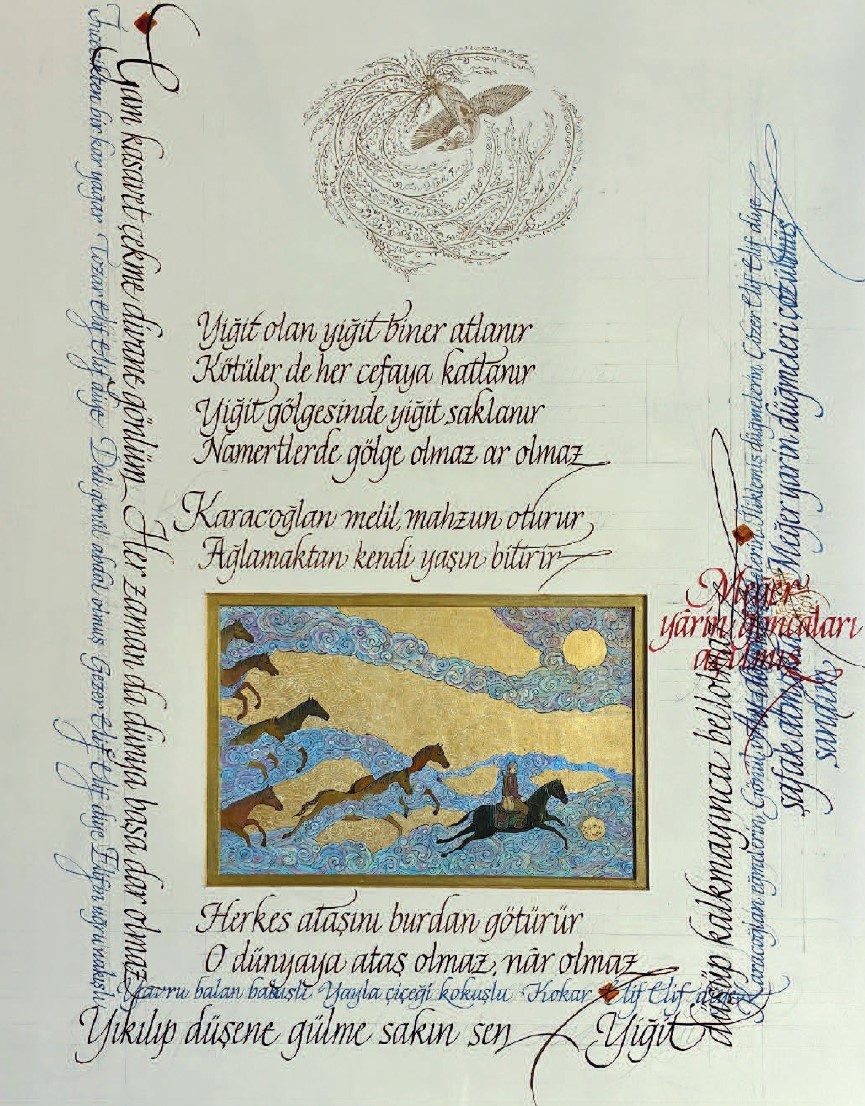 Gam kasavet çekme divane gönlüm Her zaman da dünya başa dar olmaz
İncecikten bir kar yağar Tozar Elif Elif diye Deli gönül abdal olmuş Gezer Elif Elif diye Elif'in uğru nakışlı
Yiğit olan yiğit biner atlanır
Kötüler de her cefaya katlanır
Yiğit gölgesinde yiğit saklanır
Namertlerde gölge olmaz ar olmaz
Karac'oğlan melil, mahzun oturur
Ağlamaktan kendi yaşın bitirir
Herkes ataşını burdan götürür
O dünyaya ataş olmaz, nâr olmaz
Yavru balan bakışlı Yayla çiçeği kokuşlu Kokar Elif Elif diye
Yıkılıp düşene gülme sakın sen Yiğit
düşüp kalkmayınca bellolmaz
Karacoğlan eğmelerin Gönül
İliklemiş düğmelerin Çözer Elif Elif diye
Meğer
yârin goncaları
açılmış
Meğer yarin düğmeleri çözülmüş
şafak
sanıân